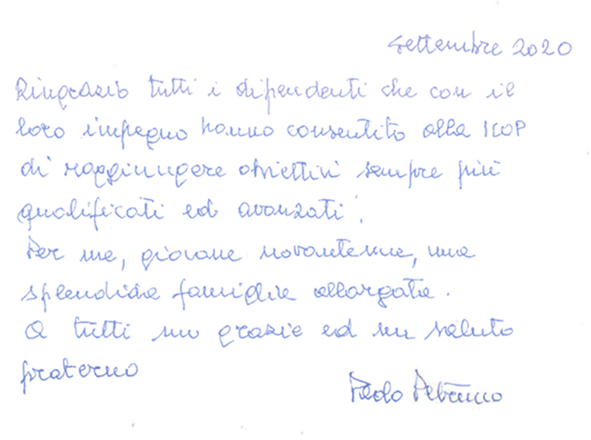 Settembre 2020
Ringrazio tutti i dipendenti che con il
loro impegno hanno consentito alla ICOP
di raggiungere obiettivi sempre più
qualificati ed avanzati.
Per me, giovane novantenne, una
splendida famiglia allargata.
A tutti un grazie ed un saluto
fraterno
Paolo Petrucco